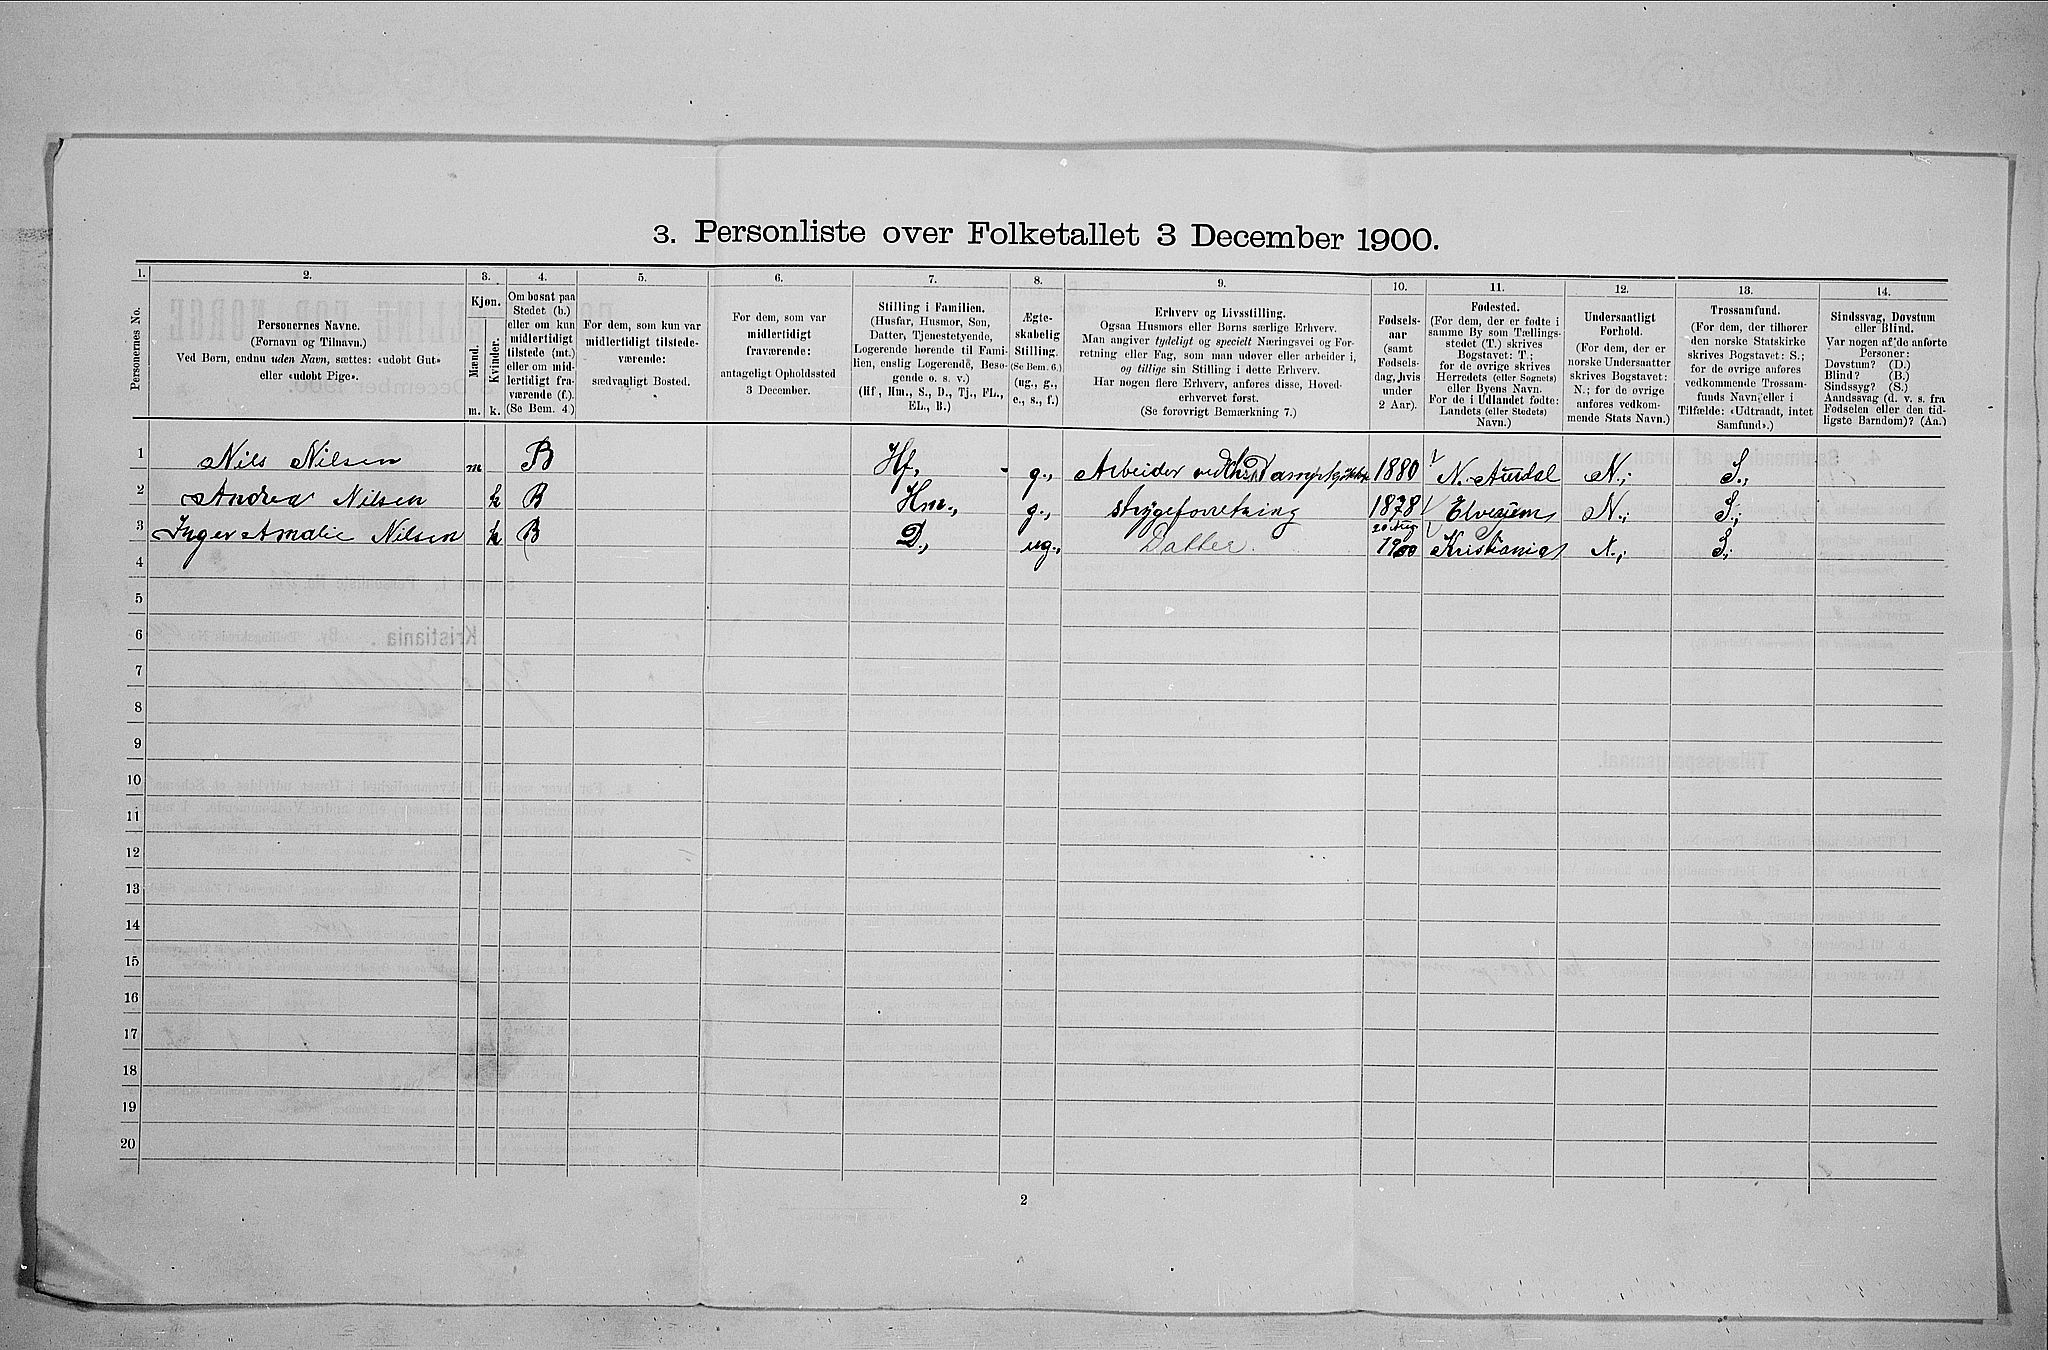 3. Personliste over Folketallet 3 December 1900.
1. 2. 3. 4. 5. 6. 7. 8. 9. 10. 11. 12. 13. 14.
Personernes No.
Personernes Navne.
(Fornavn og Tilnavn.)
Ved Børn, endnu uden Navn, sættes: «udøbt Gut»
eller «udøbt Pige».
Kjøn.
Mænd.
Kvinder.
m. k.
Om bosat paa
Stedet (b.)
eller om kun
midlertidigt
tilstede (mt.)
eller om mid-
lertidigt fra-
værende (f.).
(Se Bem. 4.)
For dem, som kun var
midlertidigt tilstede-
værende:
sædvanligt Bosted.
For dem, som var
midlertidigt
fraværende:
antageligt Opholdssted
3 December.
Stilling i Familien.
(Husfar, Husmor, Søn,
Datter, Tjenestetyende,
Logerende hørende til Fami-
lien, enslig Logerende, Besø-
gende o. s. v.)
(Hf., Hm., S., D., Tj., FL.,
EL., B.)
Ægte-
skabelig
Stilling.
(Se Bem. 6.)
(ug., g.,
e., s., f.)
Erhverv og Livsstilling.
Ogsaa Husmors eller Børns særlige Erhverv.
Man angiver tydeligt og specielt Næringsvei og For-
retning eller Fag, som man udøver eller arbeider i,
og tillige sin Stilling i dette Erhverv.
Har nogen flere Erhverv, anføres disse, Hoved-
erhvervet først.
(Se forøvrigt Bemærkning 7.)
Fødsels-
aar
(samt
Fødsels-
dag, hvis
under
2 Aar).
Fødested.
(For dem, der er fødte i
samme By som Tællings-
stedet (T.) skrives
Bogstavet: T.;
for de øvrige skrives
Herredets (eller Sognets)
eller Byens Navn.
For de i Udlandet fødte:
Landets (eller Stedets)
Navn.)
Undersaatligt
Forhold.
(For dem, der er
norske Undersaatter
skrives Bogstavet:
N.; for de øvrige
anføres vedkom-
mende Stats Navn.)
Trossamfund.
(For dem, der tilhører
den norske Statskirke
skrives Bogstavet: S.;
for de øvrige anføres
vedkommende Trossam-
funds Navn, eller i
Tilfælde: «Udtraadt, intet
Samfund».)
Sindssvag, Døvstum
eller Blind.
Var nogen af de anførte
Personer:
Døvstum? (D.)
Blind? (B.)
Sindssyg? (S.)
Aandssvag (d. v. s. fra
Fødselen eller den tid-
ligste Barndom)? (Aa.)
1 Nils Nilsen m B Hf., g., Arbeider ved 1880 N. Aurdal N.; S.,
2 Andrea Nilsen k B Hm., g., strygeforretning 1878 Elverum N.; S.;
3 Inger Amalie Nilsen k B D., ug., Datter. 20 Aug 1900 Kristiania N.; S.
4
5
6
7
8
9
10
11
12
13
14
15
16
17
18
19
20
2